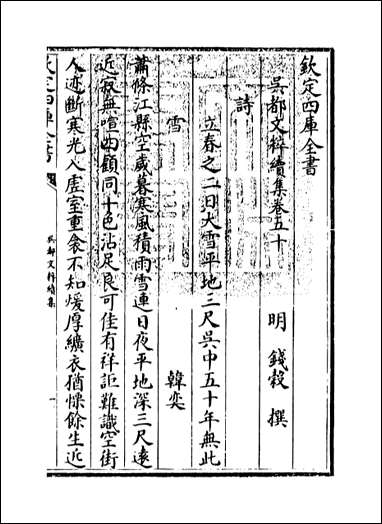 欽定四庫全書
吳都文粹續集卷五十
明 錢穀 撰
詩
立春之二日大雪平地三尺吳中五十年無此
雪 韓奕
蕭條江縣空歲暮寒風積雨雪連日夜平地深三尺遠
近寂無喧四顧同一色沾足良可佳有祥詎難識空街
人迹斷寒光入虛室重衾不知煖厚纊衣猶慄餘生近
欽定四庫全書
吳都文粹續集
一